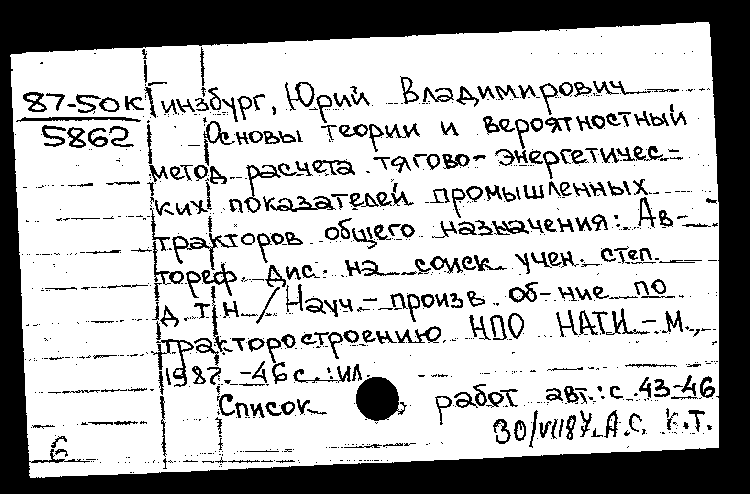 87-50к
5862
Гинзбург, Юрий Владимирович
Основы теории и вероятностный
метод расчета тягово-энергетичес-
ких показателей промышленных
тракторов общего назначения: Ав-
тореф. дис. на соиск. учен. степ.
д.т.н / Науч.-произв. об-ние по
тракторостроению НПО НАТИ.-М.,
1987.-46 с.:ил.
Список работ авт.: с.43-46
30/VII87. А.С. К.Т.
6